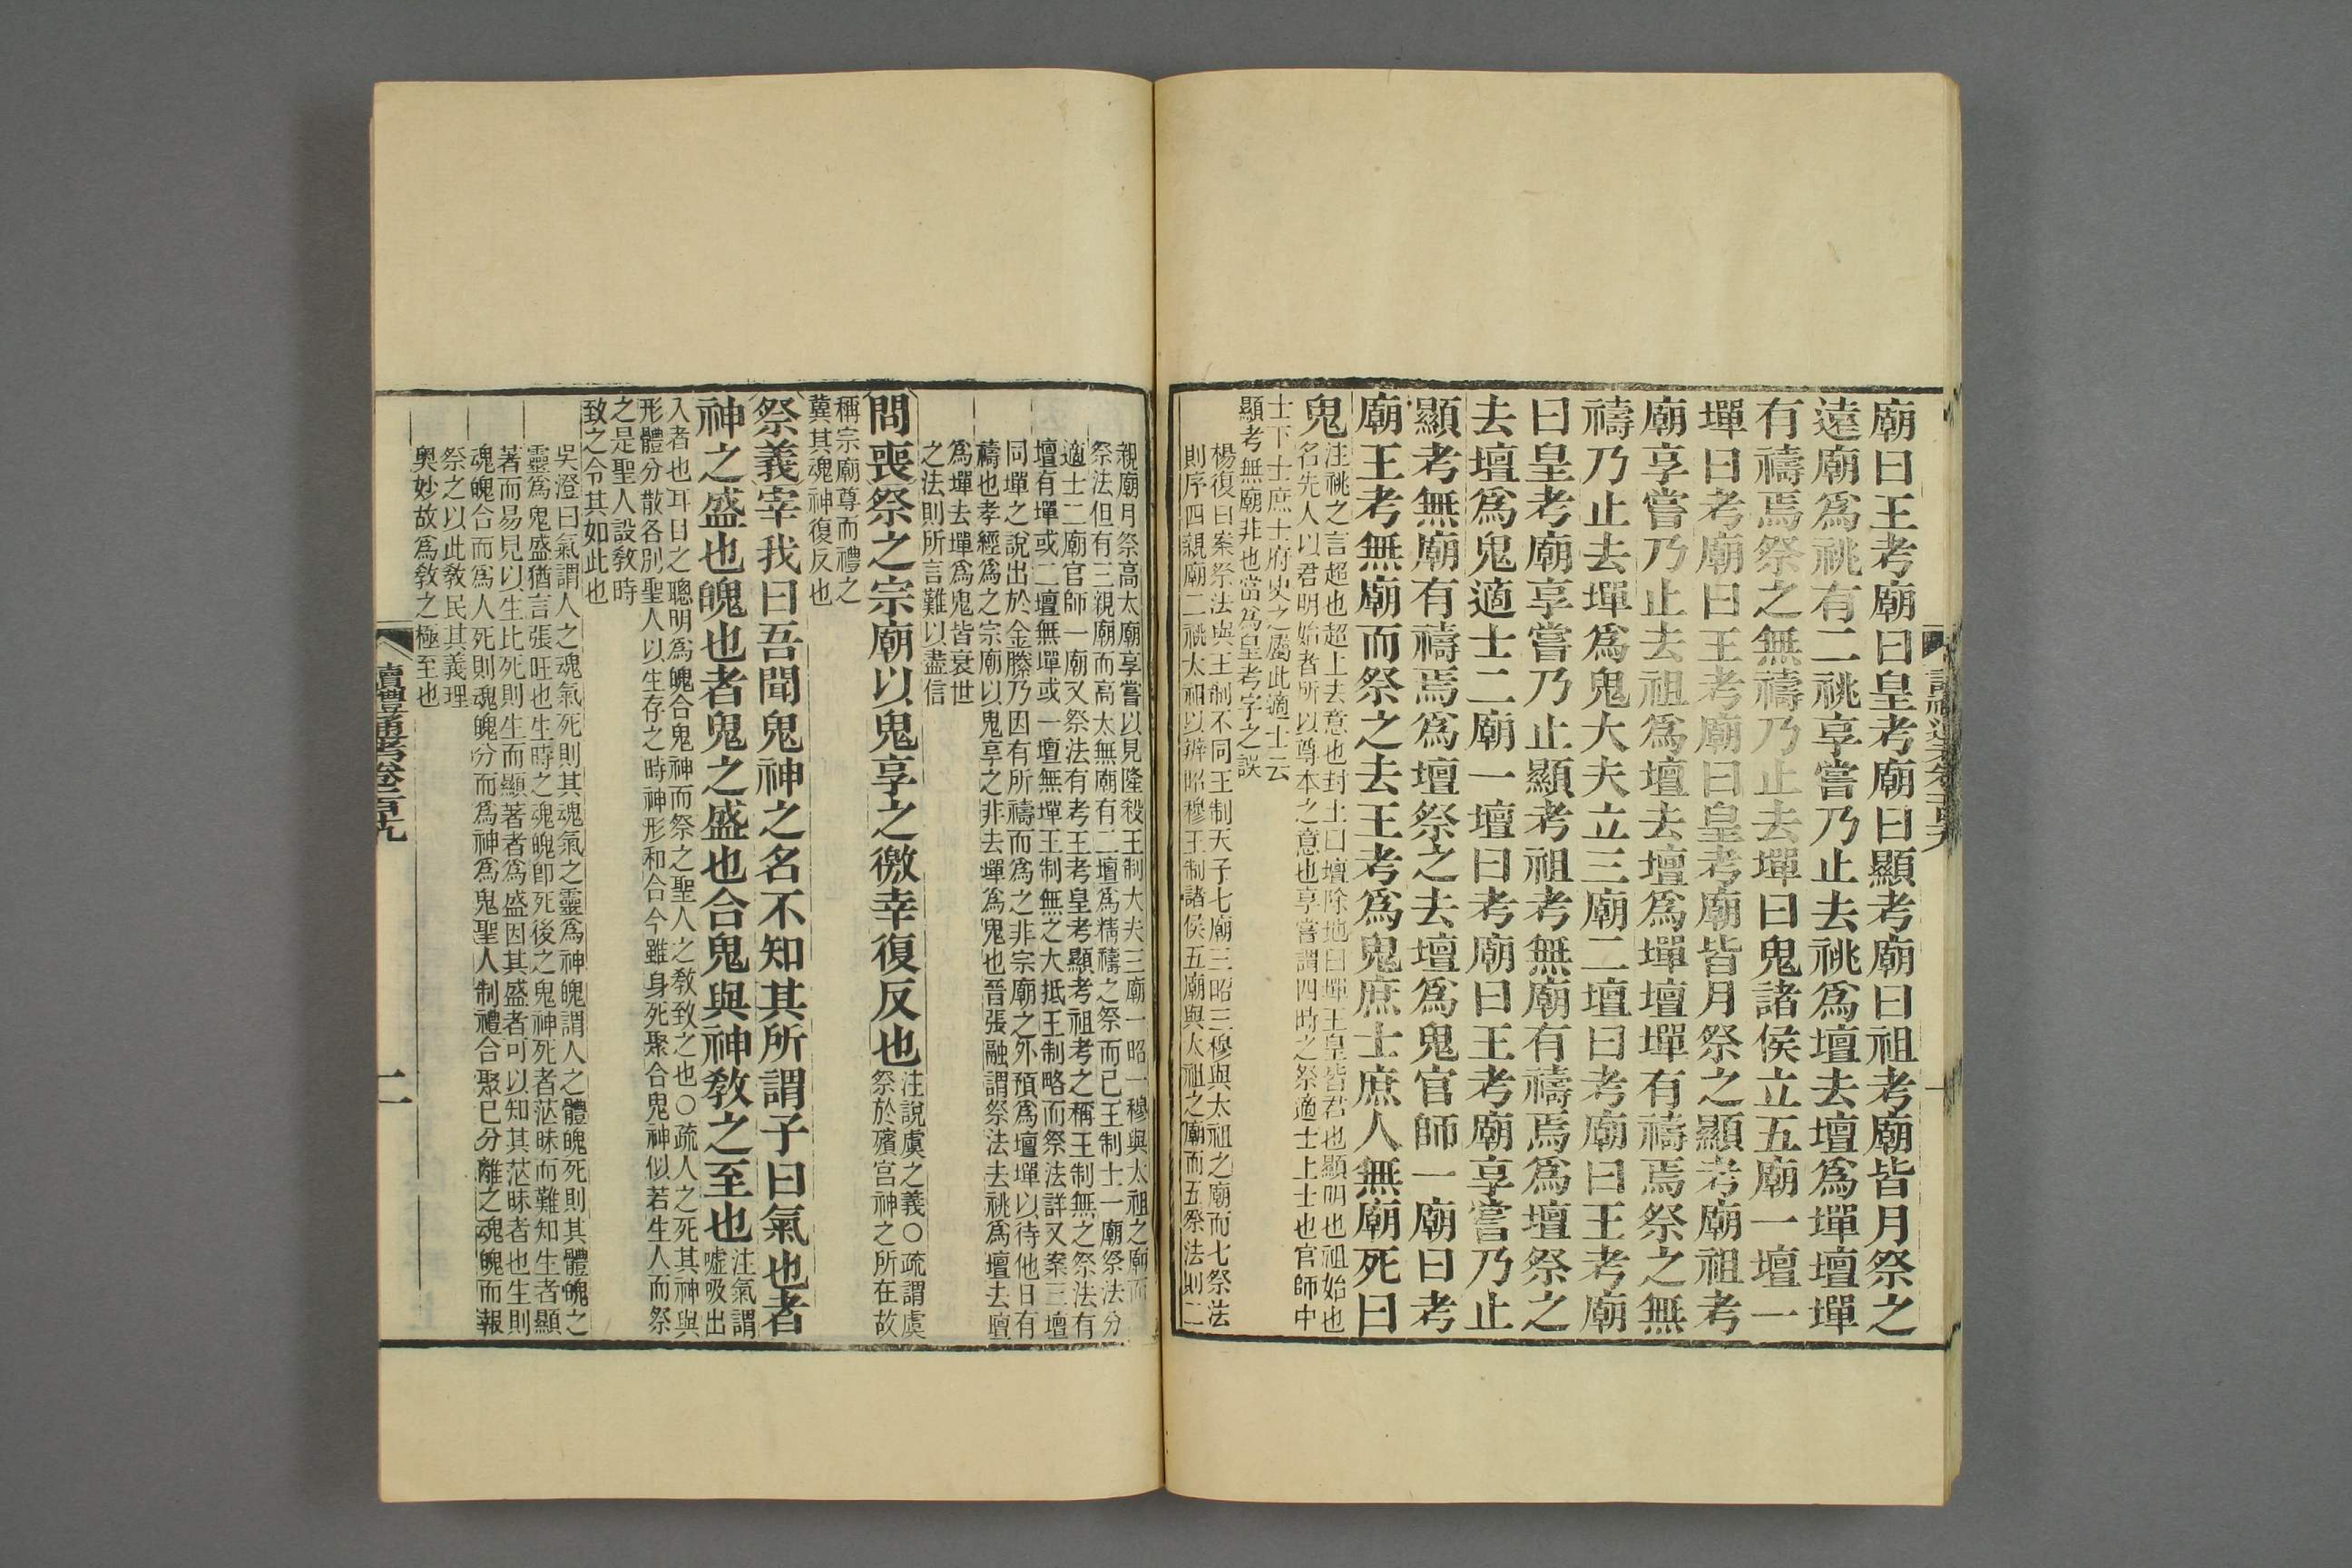 廟曰王考廟曰皇考廟曰顯考廟曰祖考廟皆月祭之
遠廟爲祧有二祧享嘗乃止去祧爲壇去壇爲墠壇墠
有禱焉祭之無禱乃止去墠曰鬼諸侯立五廟一壇一
墠曰考廟曰王考廟曰皇考廟皆月祭之顯考廟祖考
廟享嘗乃止去祖爲壇去壇爲墠壇墠有禱焉祭之無
禱乃止去墠爲鬼大夫立三廟二壇曰考廟曰王考廟
曰皇考廟享嘗乃止顯考祖考無廟有禱焉爲壇祭之
去壇爲鬼適士二廟一壇曰考廟曰王考廟享嘗乃止
顯考無廟有禱焉爲壇祭之去壇爲鬼官師一廟曰考
廟王考無廟而祭之去王考爲鬼庶士庶人無廟死曰
鬼
注祧之言超也超上去意也封土曰壇除地曰墠王皇皆君也顯明也祖始也
名先人以君明始者所以尊本之意也享嘗謂四時之祭適士上士也官師中
士下士庶士府史之屬此適士云
顯考無廟非也當爲皇考字之誤
楊復曰案祭法與王制不同王制天子七廟三昭三穆與太祖之廟而七祭法
則序四親廟二祧太祖以辨昭穆王制諸侯五廟與太祖之廟而五祭法則二
親廟月祭高太廟享嘗以見隆殺王制大夫三廟一昭一穆與太祖之廟而
祭法但有三親廟而高太無廟有二壇爲精禱之祭而已王制士一廟祭法分
適士二廟官師一廟又祭法有考王考皇考顯考祖考之稱王制無之祭法有
壇有墠或二壇無墠或一壇無墠王制無之大抵王制略而祭法詳又案三壇
同墠之說出於金縢乃因有所禱而爲之非宗廟之外預爲壇墠以待他日有
禱也孝經爲之宗廟以鬼享之非去墠爲鬼也晉張融謂祭法去祧爲壇去壇
爲墠去墠爲鬼皆衰世
之法則所言難以盡信
問喪祭之宗廟以鬼享之徼幸復反也
注說虞之義○疏謂虞
祭於殯宮神之所在故
稱宗廟尊而禮之
冀其魂神復反也
祭義宰我曰吾聞鬼神之名不知其所謂子曰氣也者
神之盛也魄也者鬼之盛也合鬼與神敎之至也
注氣謂
噓吸出
入者也耳目之聰明爲魄合鬼神而祭之聖人之敎致之也○疏人之死其神與
形體分散各別聖人以生存之時神形和合今雖身死聚合鬼神似若生人而祭
之是聖人設敎時
致之令其如此也
吳澄曰氣謂人之魂氣死則其魂氣之靈爲神魄謂人之體魄死則其體魄之
靈爲鬼盛猶言張旺也生時之魂魄卽死後之鬼神死者茫昧而難知生者顯
著而易見以生比死則生而顯著者爲盛因其盛者可以知其茫昧者也生則
魂魄合而爲人死則魂魄分而爲神爲鬼聖人制禮合聚已分離之魂魄而報
祭之以此敎民其義理
奧妙故爲敎之極至也
讀禮通考卷一百九
二